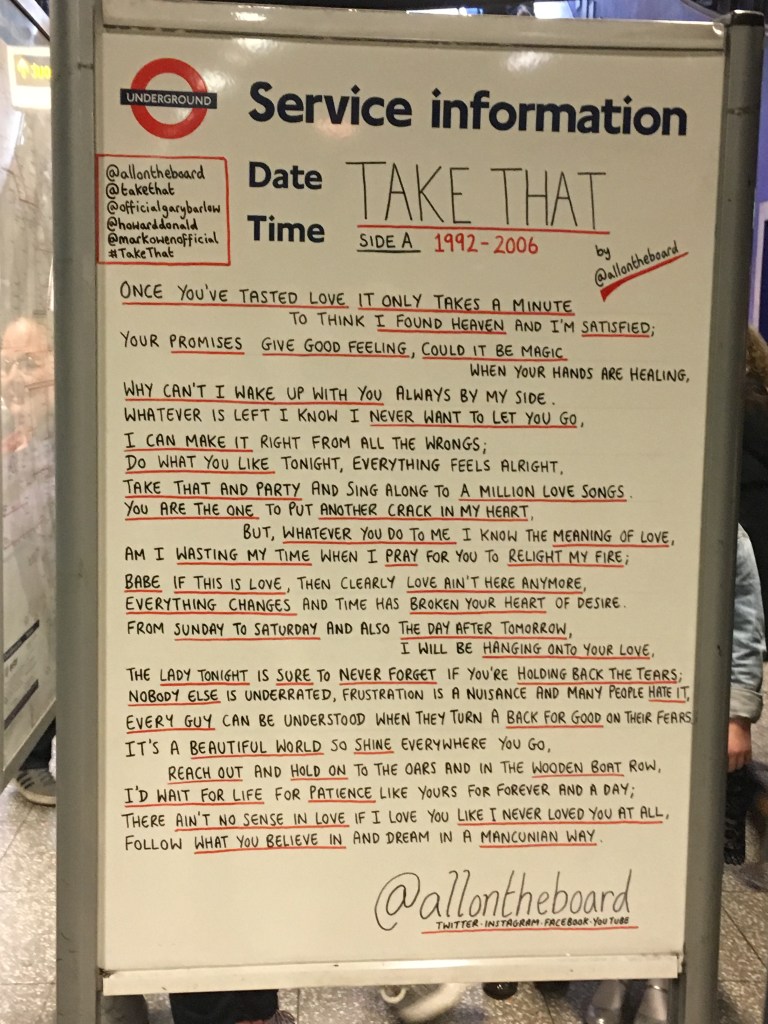 UNDERGROUND
Service information
@allontheboard
@takethat
@officialgarybarlow
@howarddonald
@markowenofficial
#TakeThat
Date
Time
TAKE THAT
SIDE A 1992-2006
by
@allontheboard
ONCE YOU'VE TASTED LOVE IT ONLY TAKES A MINUTE
TO THINK I FOUND HEAVEN AND I'M SATISFIED;
YOUR PROMISES GIVE GOOD FEELING, COULD IT BE MAGIC
WHEN YOUR HANDS ARE HEALING,
WHY CAN'T I WAKE UP WITH YOU ALWAYS BY MY SIDE.
WHATEVER IS LEFT I KNOW I NEVER WANT TO LET YOU GO,
I CAN MAKE IT RIGHT FROM ALL THE WRONGS;
DO WHAT YOU LIKE TONIGHT, EVERYTHING FEELS ALRIGHT.
TAKE THAT AND PARTY AND SING ALONG TO A MILLION LOVE SONGS.
YOU ARE THE ONE TO PUT ANOTHER CRACK IN MY HEART,
BUT, WHATEVER YOU DO TO ME I KNOW THE MEANING OF LOVE,
AM I WASTING MY TIME WHEN I PRAY FOR YOU TO RELIGHT MY FIRE;
BABE IF THIS IS LOVE, THEN CLEARLY LOVE AIN'T HERE ANYMORE,
EVERYTHING CHANGES AND TIME HAS BROKEN YOUR HEART OF DESIRE.
FROM SUNDAY TO SATURDAY AND ALSO THE DAY AFTER TOMORROW,
I WILL BE HANGING ONTO YOUR LOVE,
THE LADY TONIGHT IS SURE TO NEVER FORGET IF YOU'RE HOLDING BACK THE TEARS;
NOBODY ELSE IS UNDERRATED, FRUSTRATION IS A NUISANCE AND MANY PEOPLE HATE IT,
EVERY GUY CAN BE UNDERSTOOD WHEN THEY TURN A BACK FOR GOOD ON THEIR FEARS
IT'S A BEAUTIFUL WORLD SO SHINE EVERYWHERE YOU GO,
REACH OUT AND HOLD ON TO THE OARS AND IN THE WOODEN BOAT ROW,
I'D WAIT FOR LIFE FOR PATIENCE LIKE YOURS FOR FOREVER AND A DAY;
THERE AIN'T NO SENSE IN LOVE IF I LOVE YOU LIKE I NEVER LOVED YOU AT ALL,
FOLLOW WHAT YOU BELIEVE IN AND DREAM IN A MANCUNIAN WAY.
@allontheboard
TWITTER · INSTAGRAM · FACEBOOK · YOUTUBE